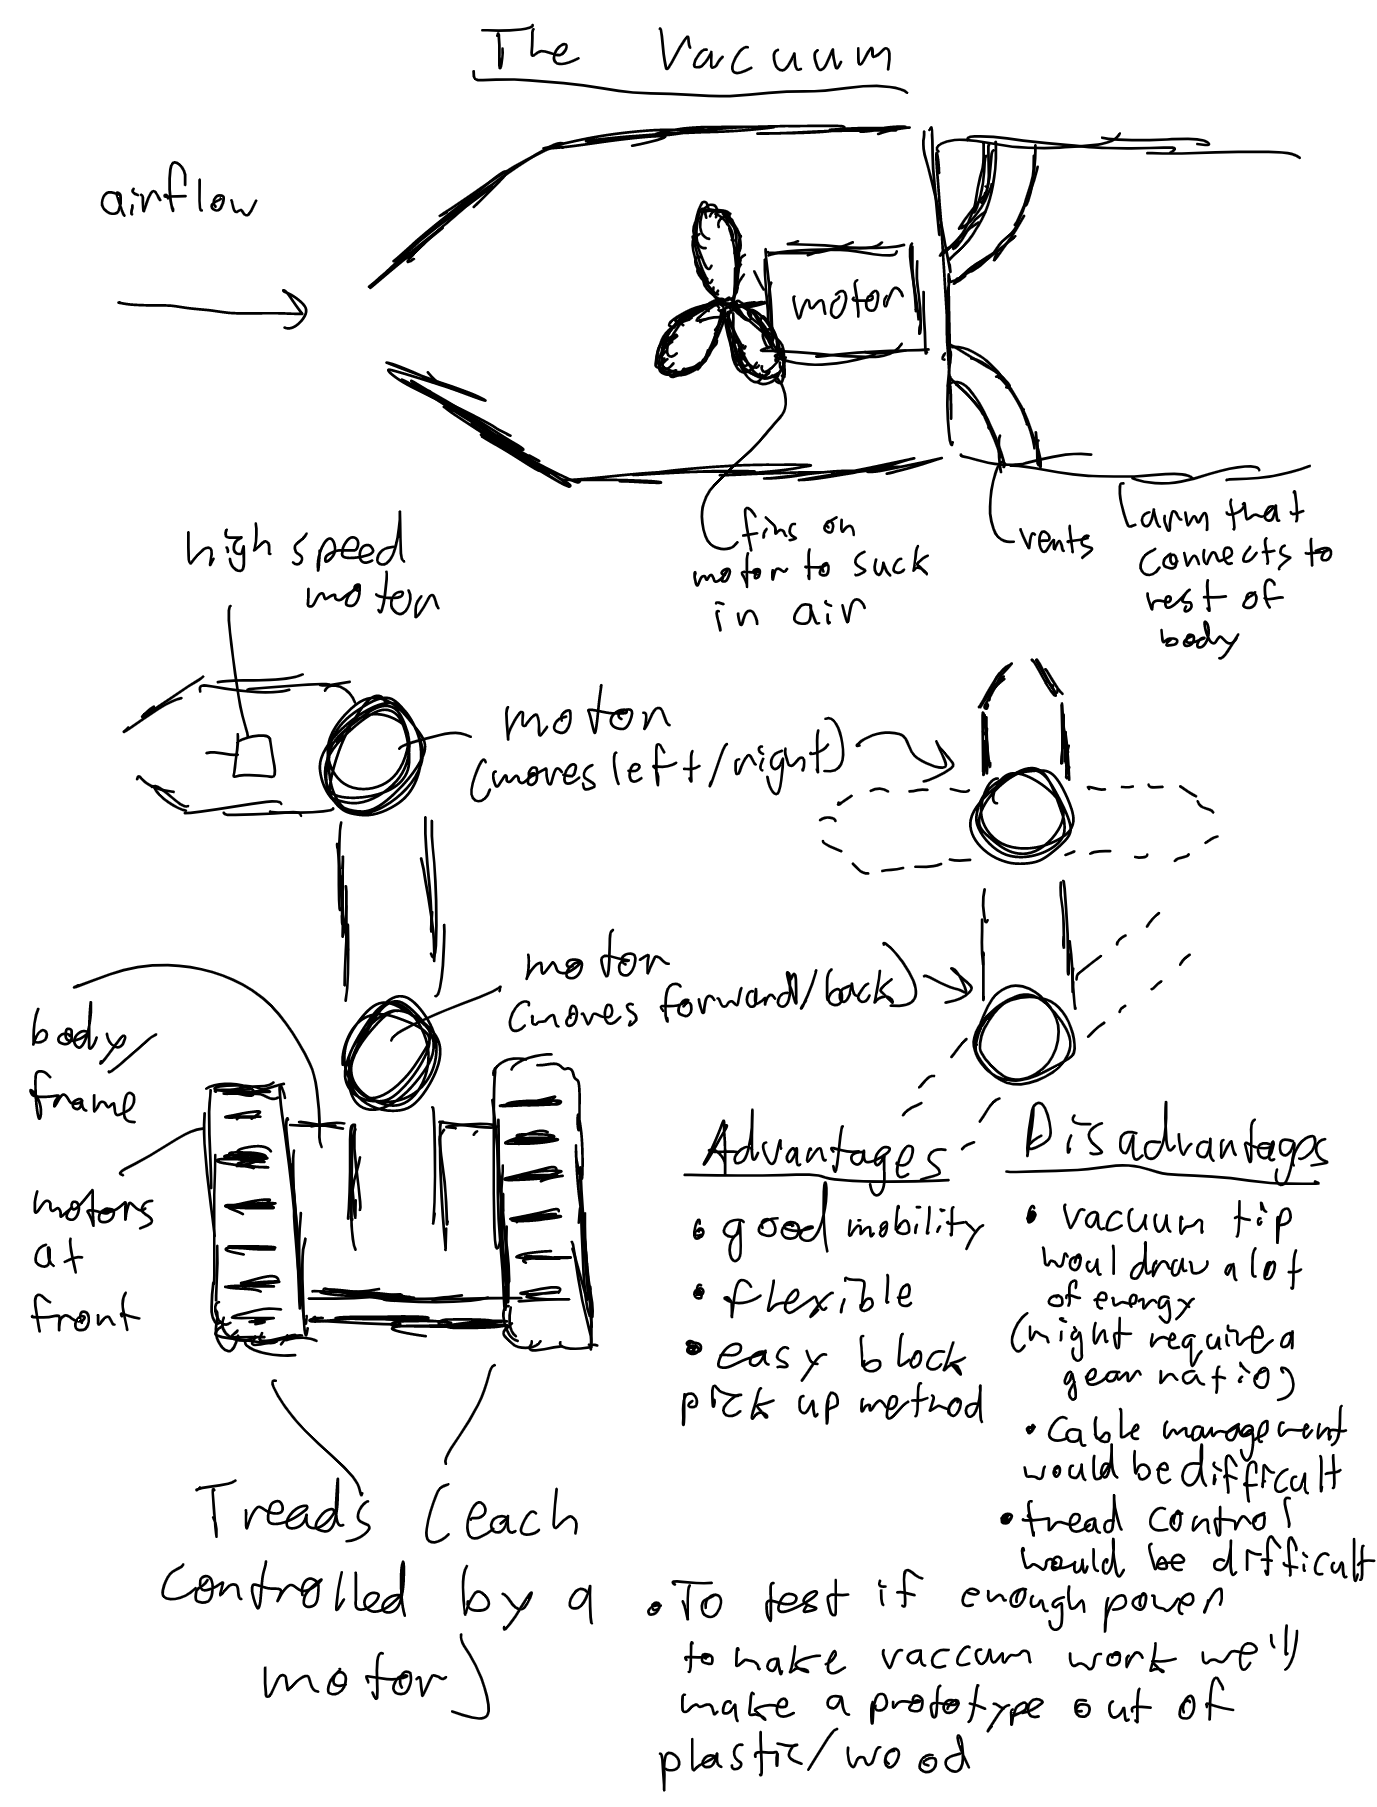 The Vacuum
airflow
motor
fins on
motor to suck
in air
vents
(arm that
connects to
rest of
body
high speed
motor
motor
(moves left/right)
motor
(moves forward/back)
body/
frame
motors
at
front
Treads (each
controlled by a
motor)
Advantages
• good mobility
• flexible
• easy block
pick up method
Disadvantages
• vacuum tip
would draw a lot
of energy
(might require a
gear ratio)
• Cable management
would be difficult
• tread control
would be difficult
• To test if enough power
to make vaccum work we'll
make a prototype out of
plastic/wood